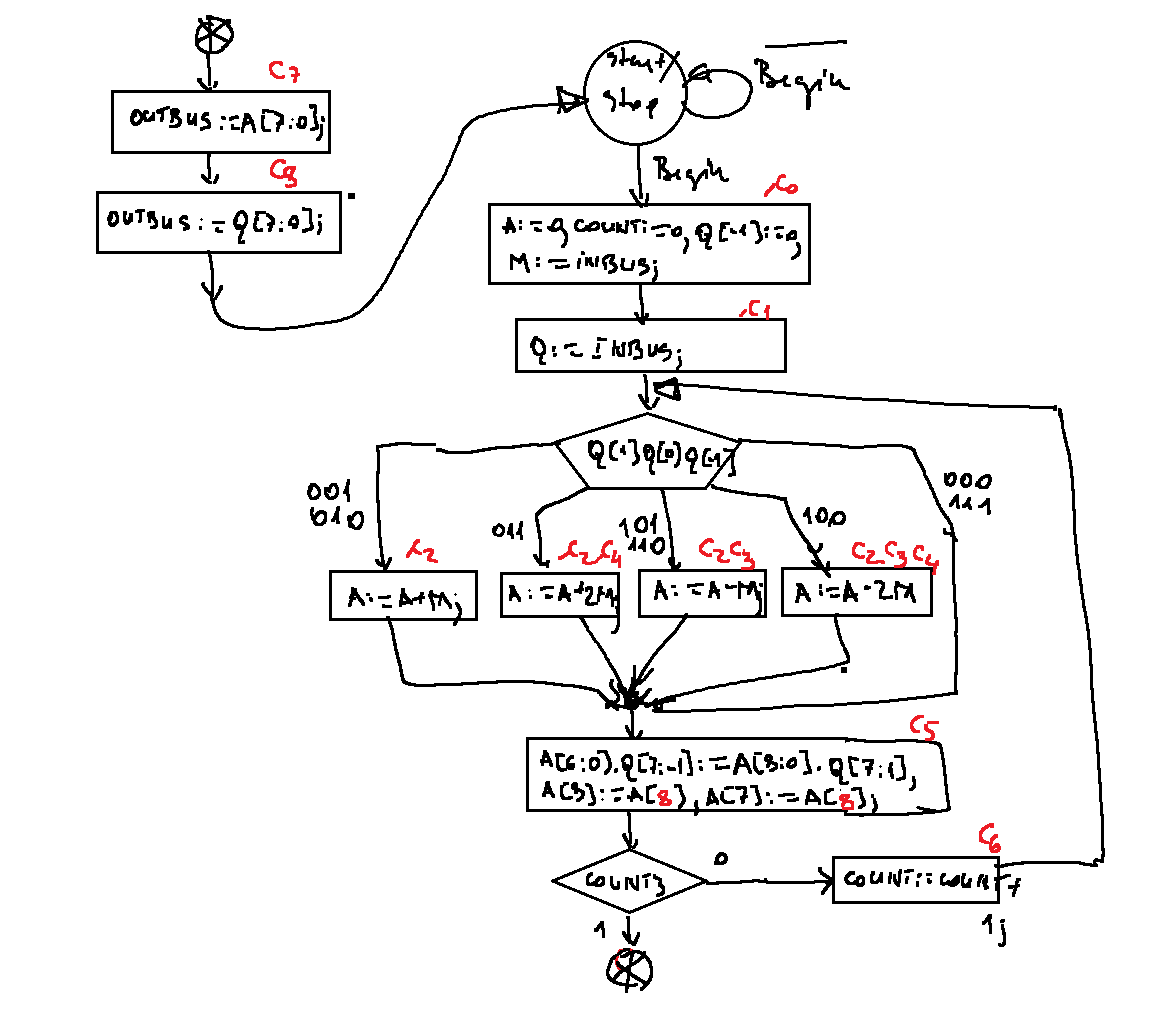 C7
OUTBUS:=A[7:0];
C8
OUTBUS:=Q[7:0];
start/
stop
Begin
Begin
C0
A:=0, COUNT:=0, Q[-1]:=0,
M:=INBUS;
C1
Q:=INBUS;
Q[1]Q[0]Q[-1]
001
010
011
101
110
100
000
111
C2
C2 C4
C2 C3
C2 C3 C4
A:=A+M;
A:=A+2M;
A:=A-M;
A:=A-2M
C5
A[6:0].Q[7:-1]:=A[8:0].Q[7:1],
A[8]:=A[8], A[7]:=A[8];
COUNT3
0
1
C6
COUNT:=COUNT+
1;